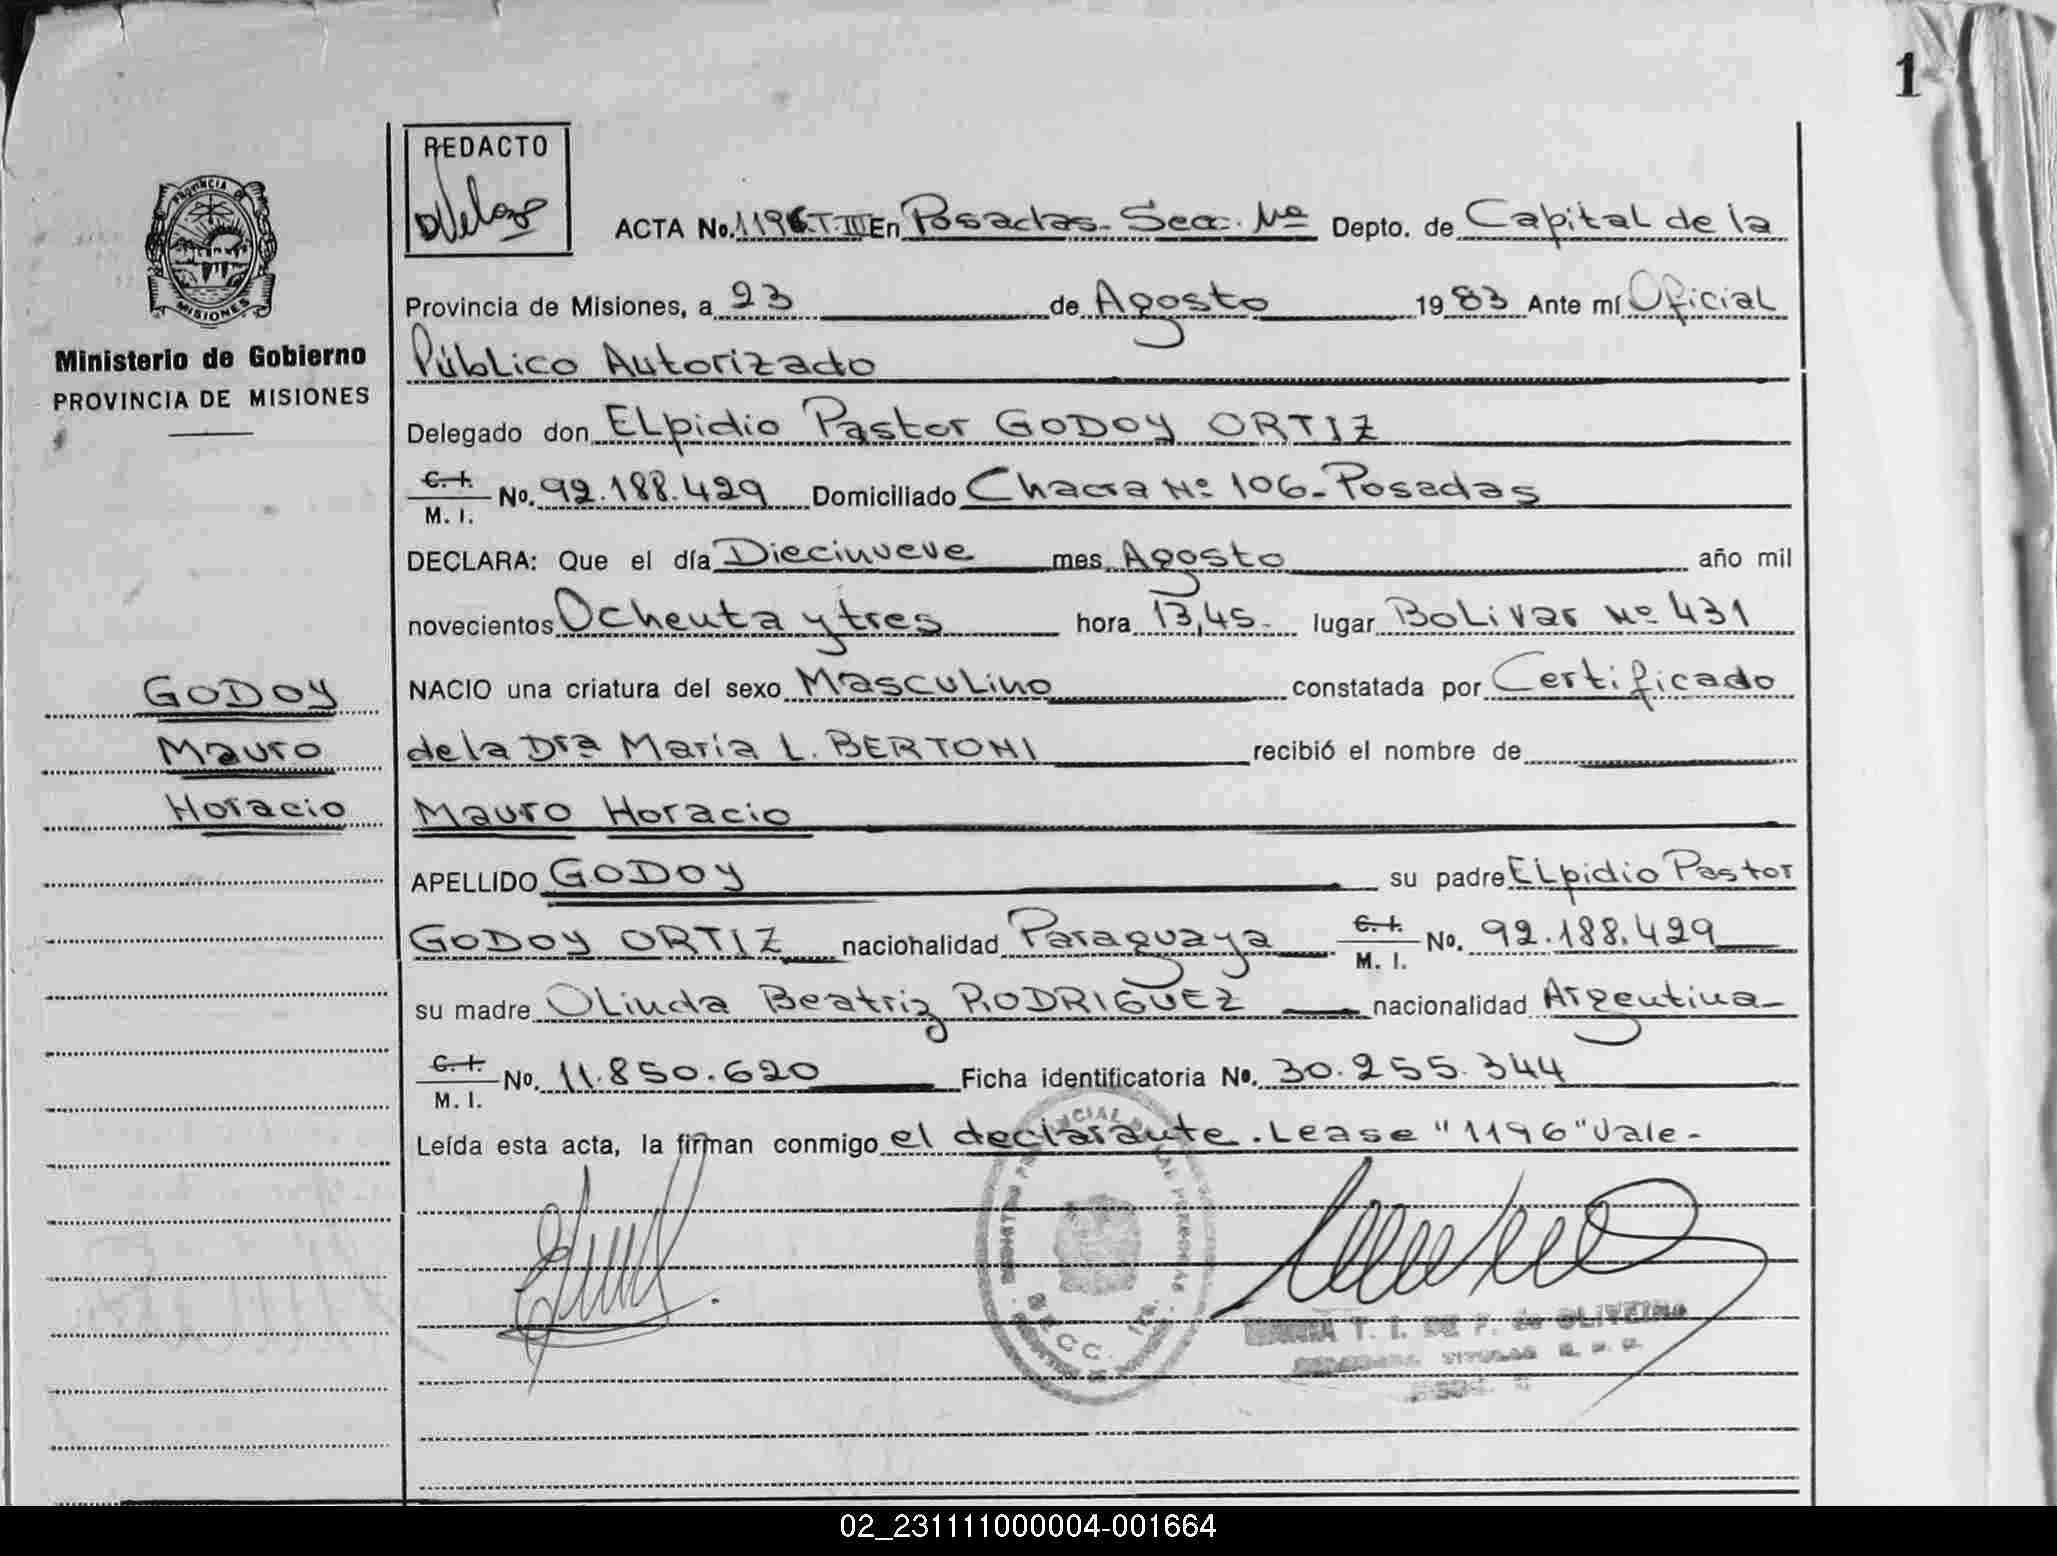 1
REDACTO
PROVINCIA DE
MISIONES
ACTA No. 1196 T. III En Posadas- Secc. 1ra Depto. de Capital de la
Provincia de Misiones, a 23 de Agosto 1983 Ante mí Oficial
Ministerio de Gobierno
PROVINCIA DE MISIONES
Público Autorizado
Delegado don ELpidio Pastor GODOY ORTIZ
C. I. M. I. No. 92.188.429 Domiciliado Chacra Nº 106- Posadas
DECLARA: Que el día Diecinueve mes Agosto año mil
novecientos Ochenta y tres hora 13,45- lugar BoLivar Nº 431
GODOY
Mauro
Horacio
NACIO una criatura del sexo Masculino constatada por Certificado
de la Dra María L. BERTONI recibió el nombre de
Mauro Horacio
APELLIDO GODOY su padre ELpidio Pastor
GODOY ORTIZ nacionalidad Paraguaya C. I. M. I. No. 92.188.429
su madre OLinda Beatriz RODRIGUEZ nacionalidad Argentina-
C. I. M. I. No. 11.850.620 Ficha identificatoria No. 30.255.344
Leída esta acta, la firman conmigo el declarante. Lease "1196" Vale-
T. I. DE F. de OLIVEIRA
02_231111000004-001664